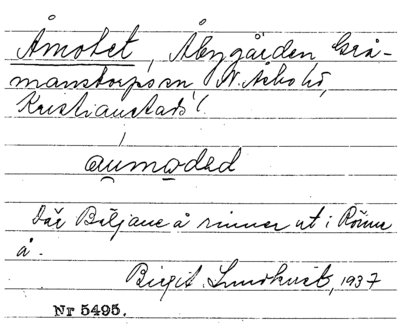 Åmotet, Åbygården Grå-
manstorps sn, N. Åsbo hd,
Kristianstads l.
åumoded
Där Bäljane å rinner ut i Rönne
å.
Birgit Lundkvist, 1937
Nr 5495.